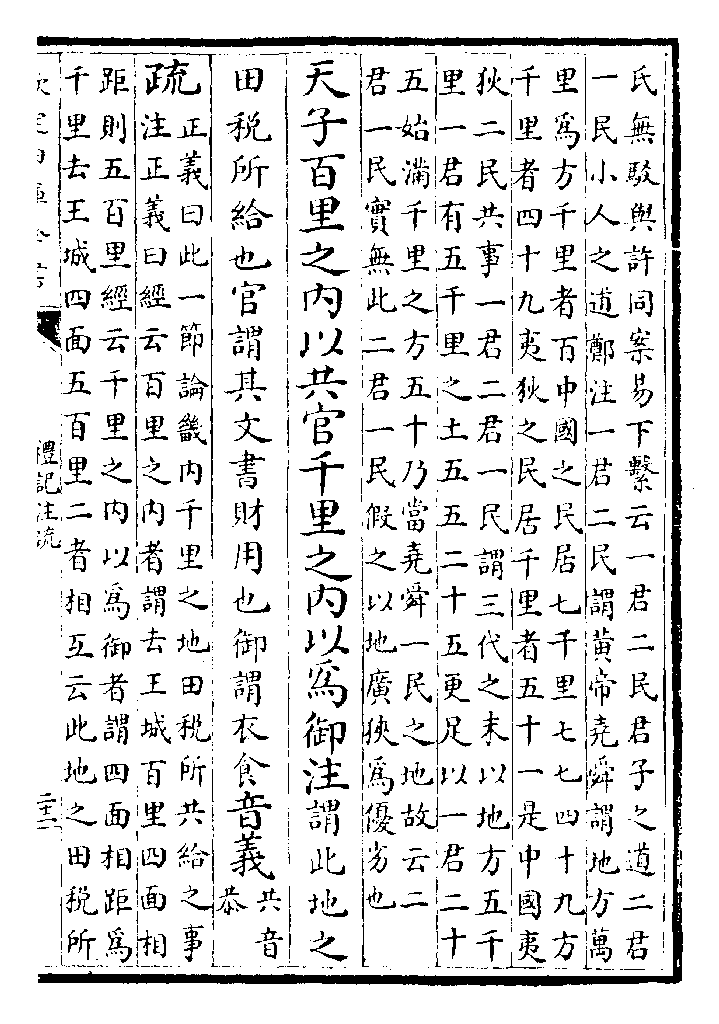 氏無駁與許同案易下繫云一君二民君子之道二君
一民小人之道鄭注一君二民謂黄帝堯舜謂地方萬
里爲方千里者百中國之民居七千里七七四十九方
千里者四十九夷狄之民居千里者五十一是中國夷
狄二民共事一君二君一民謂三代之末以地方五千
里一君有五千里之土五五二十五更足以一君二十
五始滿千里之方五十乃當堯舜一民之地故云二
君一民實無此二君一民假之以地廣狹爲優劣也
天子百里之内以共官千里之内以爲御注謂此地之
田稅所給也官謂其文書財用也御謂衣食音義共音
恭
疏正義曰此一節論畿内千里之地田稅所共給之事
注正義曰經云百里之内者謂去王城百里四面相
距則五百里經云千里之内以爲御者謂四面相距爲
千里去王城四面五百里二者相互云此地之田稅所
禮記注疏
二十二